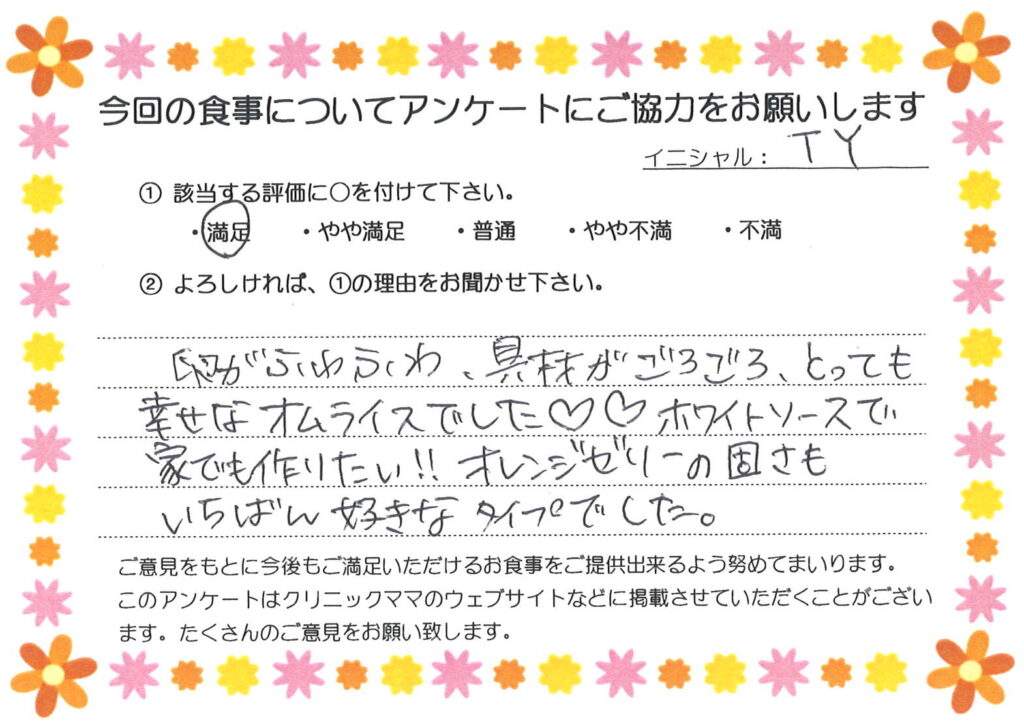 今回の食事についてアンケートにご協力をお願いします
イニシャル： TY
① 該当する評価に〇を付けて下さい。
・満足 ・やや満足 ・普通 ・やや不満 ・不満
② よろしければ、①の理由をお聞かせ下さい。
卵がふわふわ、具材がごろごろ、とっても
幸せなオムライスでした♡♡ ホワイトソースで
家でも作りたい!! オレンジゼリーの固さも
いちばん好きなタイプでした。
ご意見をもとに今後もご満足いただけるお食事をご提供出来るよう努めてまいります。
このアンケートはクリニックママのウェブサイトなどに掲載させていただくことがござい
ます。たくさんのご意見をお願い致します。